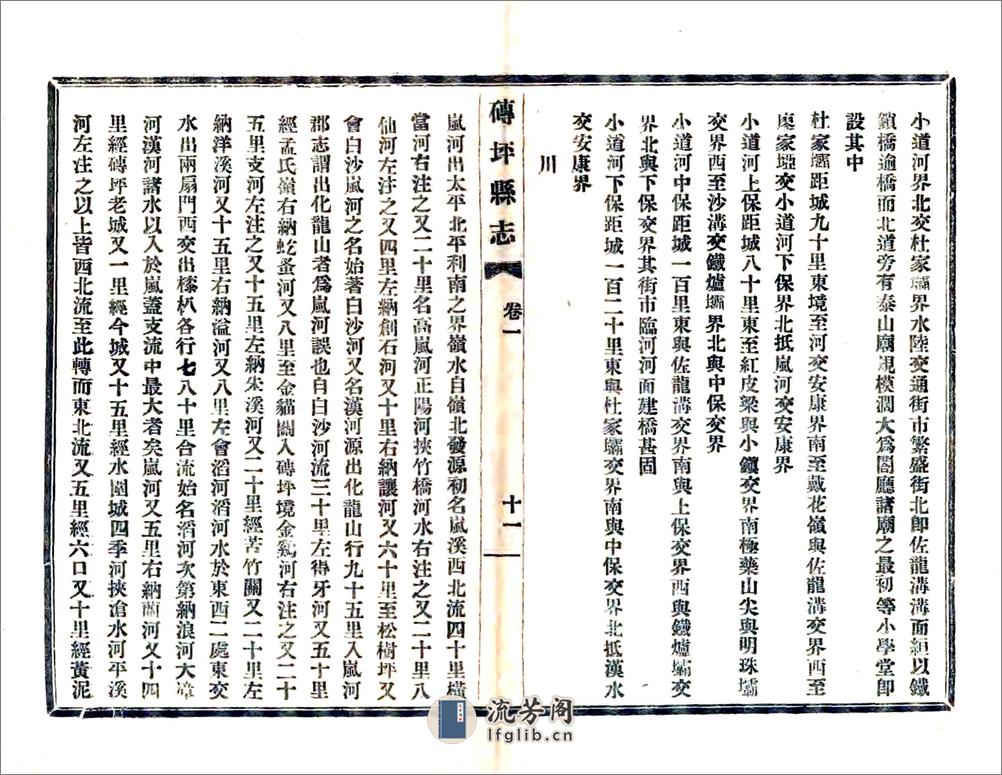 小道河界北交杜家壩界水陸交通街市繁盛街北卽佐龍溝溝面絙以鐵
鎖橋逾橋而北道旁有泰山廟規模濶大爲閤廳諸廟之最初等小學堂卽
設其中
杜家壩距城九十里東境至河交安康界南至戴花嶺與佐龍溝交界西至
廖家埡交小道河下保界北抵嵐河交安康界
小道河上保距城八十里東至紅皮梁與小鎮交界南極藥山尖與明珠壩
交界西至沙溝交鐵爐壩界北與中保交界
小道河中保距城一百里東與佐龍溝交界南與上保交界西與鐵爐壩交
界北與下保交界其街市臨河河面建橋甚固
小道河下保距城一百二十里東與杜家壩交界南與中保交界北抵漢水
交安康界
川
磚坪縣志
卷一
十一
嵐河出太平北平利南之界嶺水自嶺北發源初名嵐溪西北流四十里橫
當河右注之又二十里名高嵐河正陽河挾竹橋河水右注之又二十里八
仙河左注之又四里左納創石河又十里右納讓河又六十里至松樹坪又
會白沙嵐河之名始著白沙河又名漢河源出化龍山行九十五里入嵐河
郡志謂出化龍山者爲嵐河誤也自白沙河流三十里左得牙河又五十里
經孟氏嶺右納蛇蚤河又八里至金貓關入磚坪境金鷄河右注之又二十
五里支河左注之又十五里左納朱溪河又二十里經苦竹關又二十里左
納洋溪河又十五里右納溢河又八里左會滔河滔河水於東西二處東交
水出兩扇門西交出榛朳各行七八十里合流始名滔河次第納浪河大漳
河漢河諸水以入於嵐蓋支流中最大者矣嵐河又五里右納藺河又十四
里經磚坪老城又一里經今城又十五里經水圍城四季河挾滄水河平溪
河左注之以上皆西北流至此轉而東北流又五里經六口又十里經黃泥
流芳阁
lfglib.cn